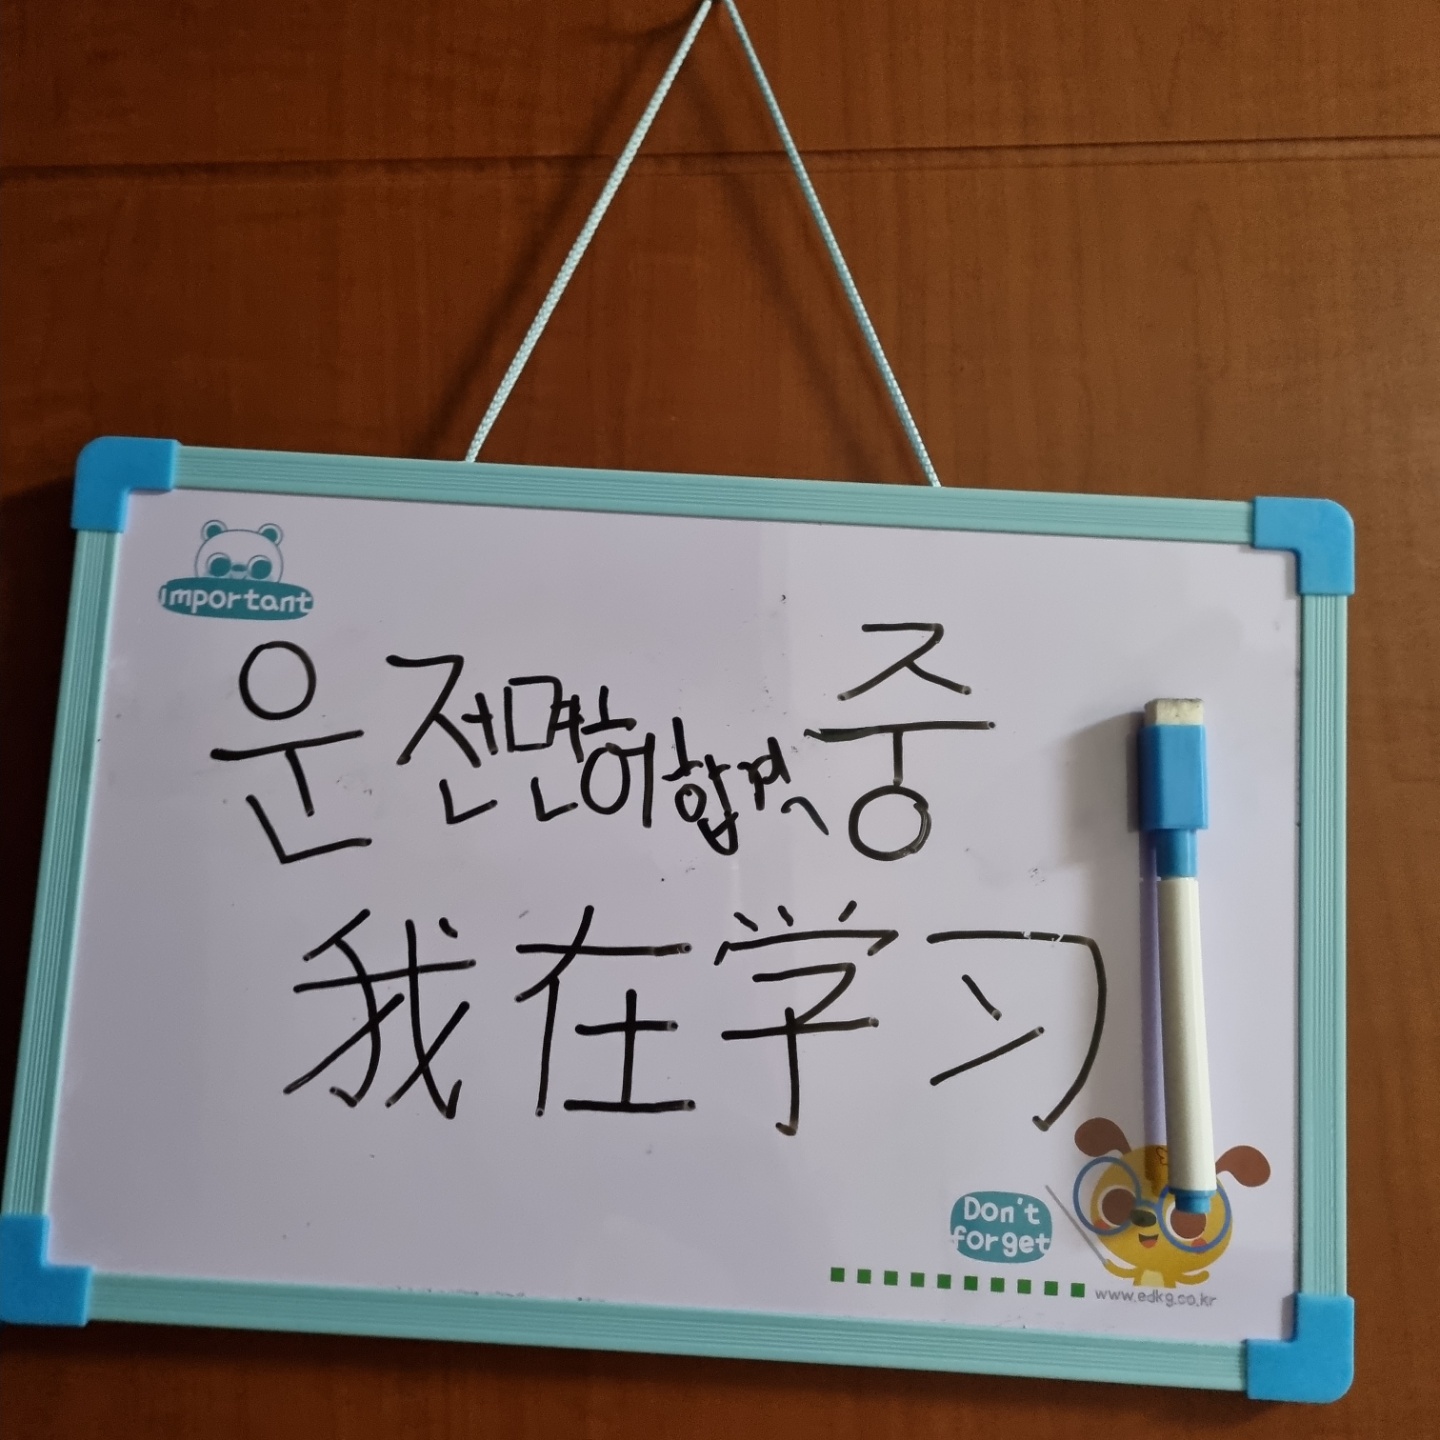 important
운전면허합격중
我在学习
Don't forget
www.edkg.co.kr